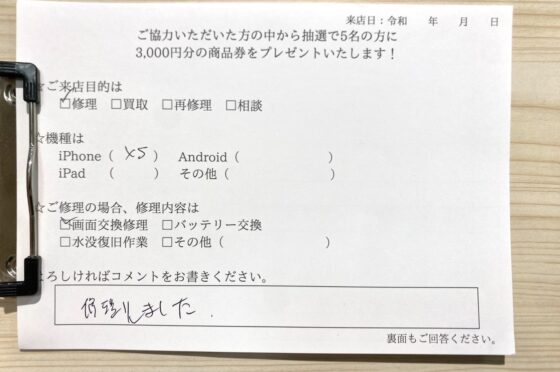 来店日：令和　　年　　月　　日
ご協力いただいた方の中から抽選で5名の方に
3,000円分の商品券をプレゼントいたします！
☆ご来店目的は
☑修理　□買取　□再修理　□相談
☆機種は
iPhone（ XS ）　Android（　　　　　　　）
iPad　（　　　）　その他（　　　　　　　　）
☆ご修理の場合、修理内容は
☑画面交換修理　□バッテリー交換
□水没復旧作業　□その他（　　　　　　　　）
よろしければコメントをお書きください。
しました.
裏面もご回答ください。